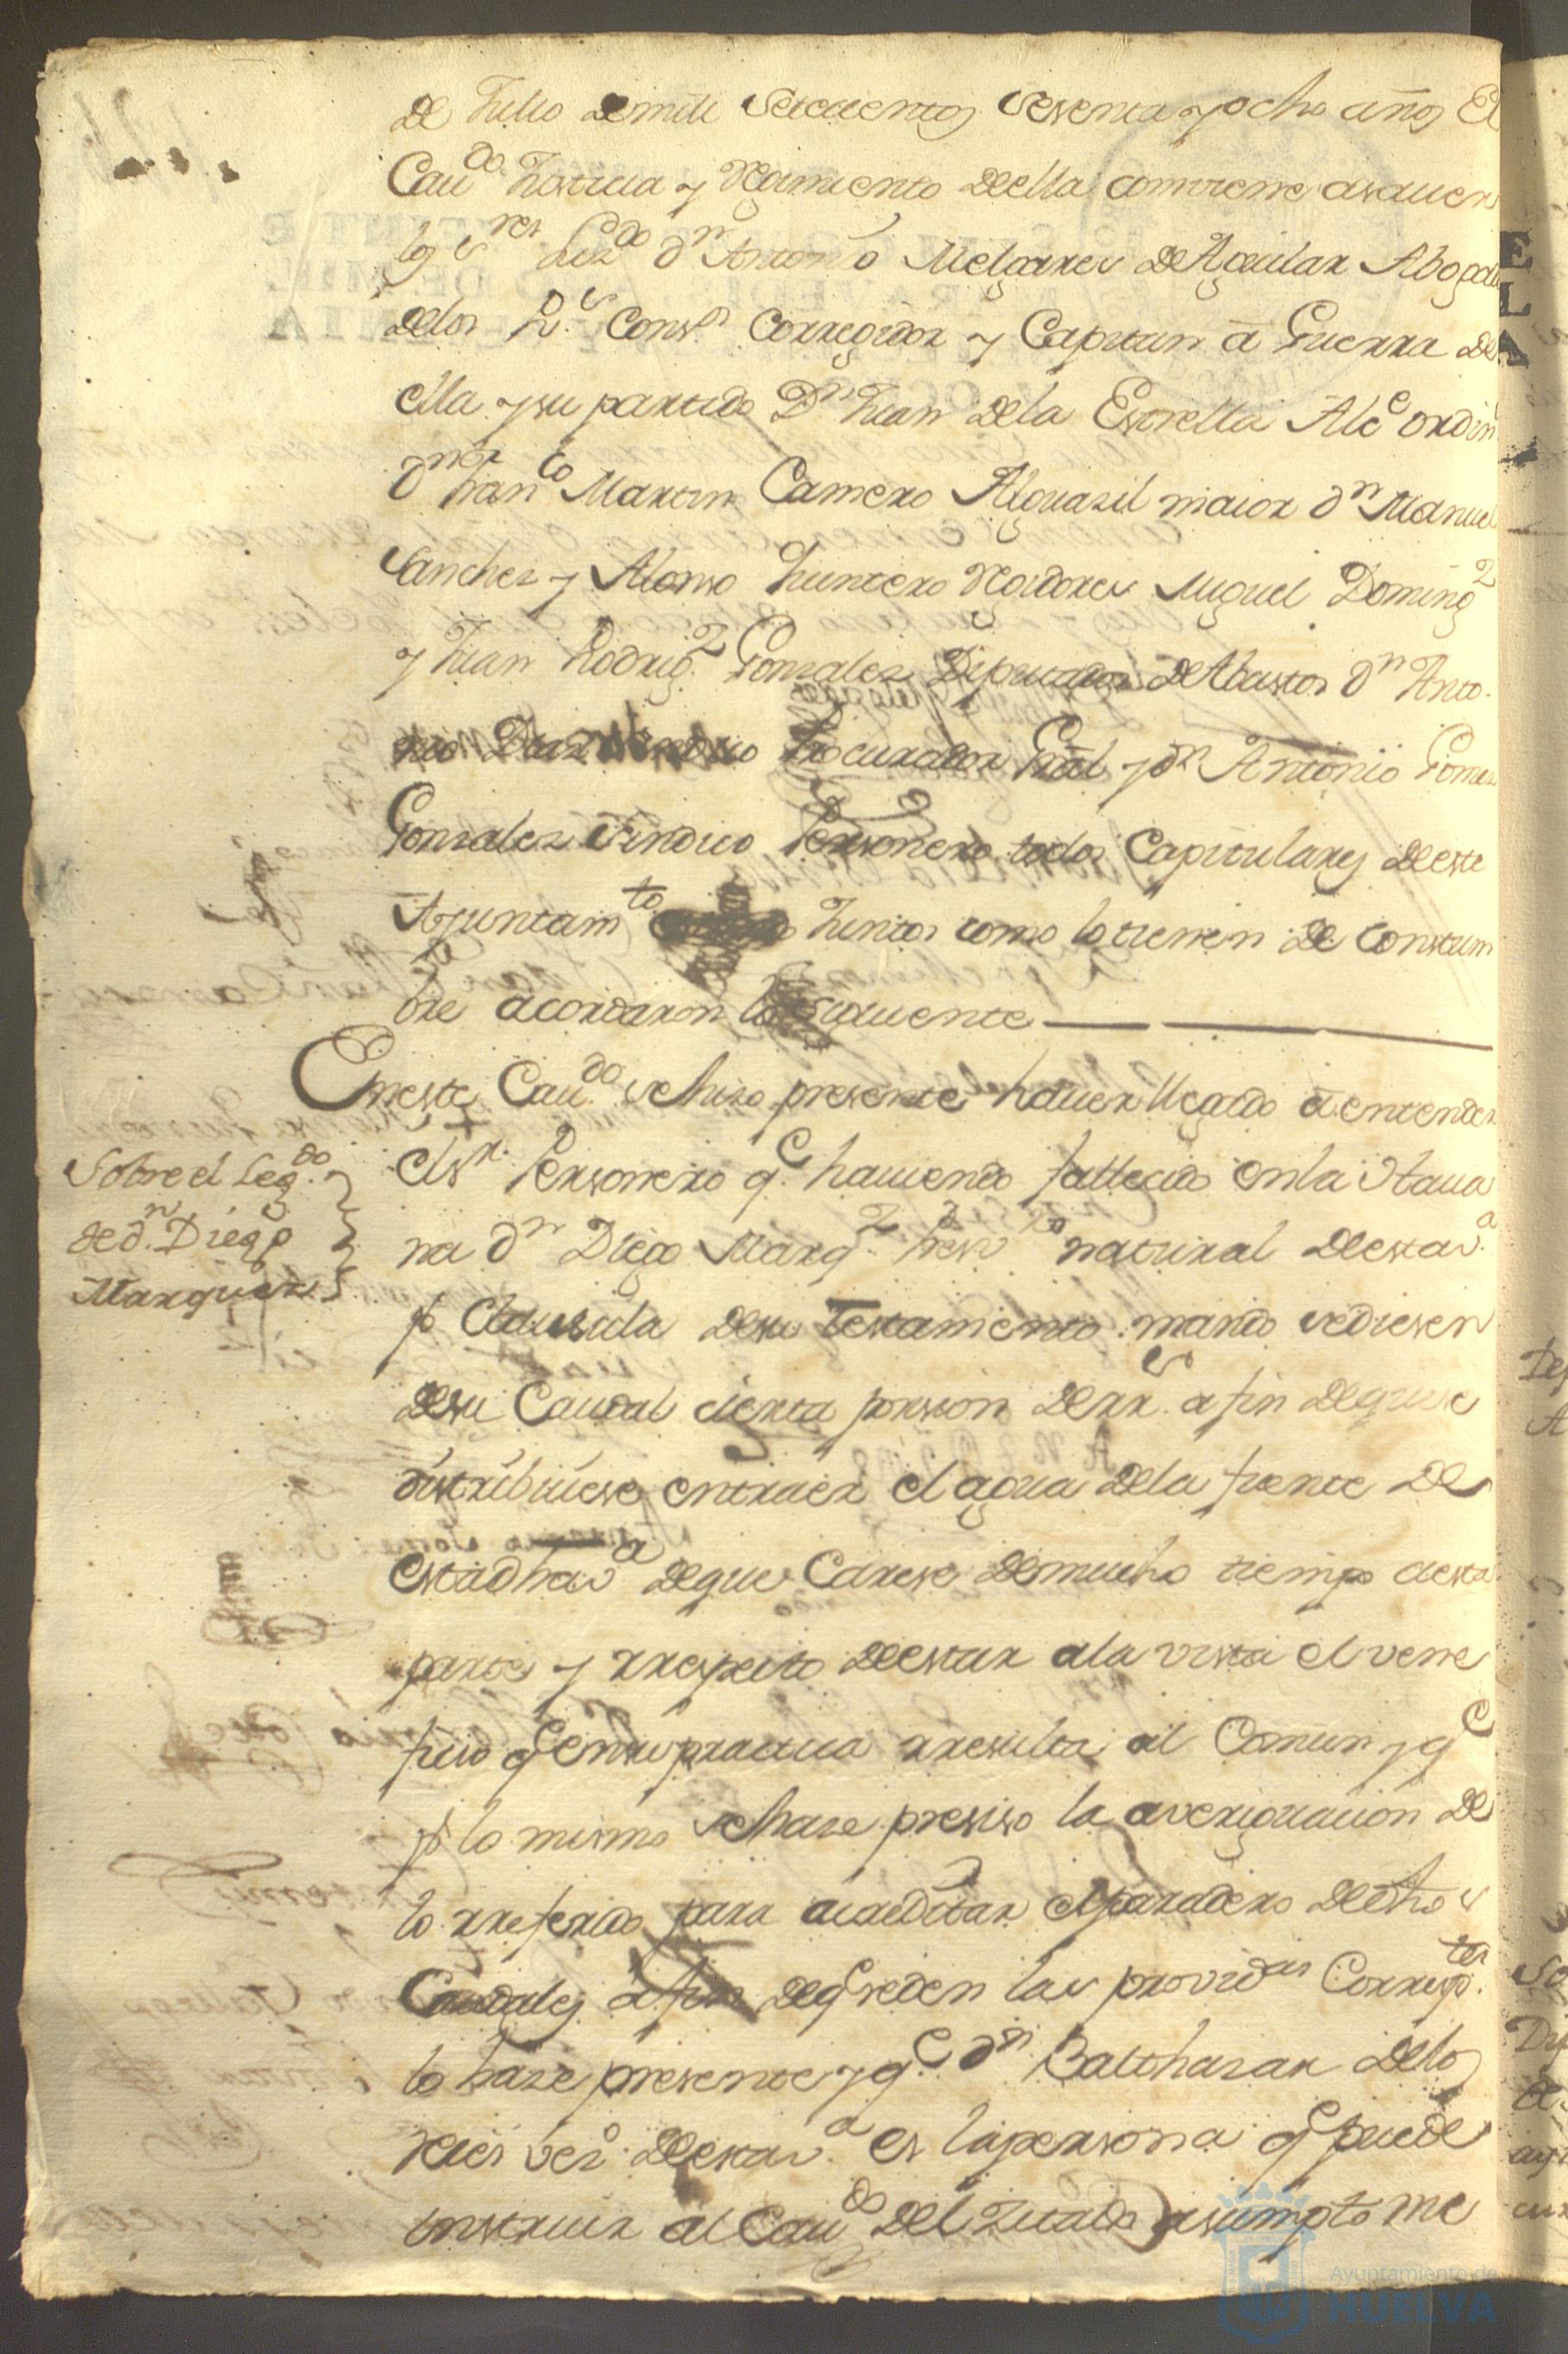 de Julio de mill Setecientos sesenta y ocho años El
Cau.do Justicia y Reximiento de ella conviene a saver
los S.res Liz.do D.n Antonio Melgarejo de Aguilar Abogado
de los R.s Cons.s Correxidor y Capitan a Guerra de
ella y su partido D.n Juan de la Estrella Alc.e ordin.o
D.n Fran.co Martin Camero Alguasil maior D.n Manuel
Sanches y Alonso Quintero Rexidores Miguel Doming.z
y Juan Rodrig.z Gonzales Diputados de Abastos D.n Anto-
nio Diaz Procurador Gral y D.n Antonio Gomez
Gonzales Sindico Personero todos Capitulares de este
Ayuntam.to Juntos como lo tienen de constum
bre acordaron lo siguiente
En este Cau.do se hizo presente haver llegado a entender
el S.r Personero q.e haviendo fallecido en la Hava
na D.n Diego Marq.z Pres.ro natural de esta V.a
p.r Clausula de su testamento mando se diesen
de su Caudal cierta porsion de rr.s a fin de que se
distribuiese en traer el agua de la fuente de
esta dha V.a de que Carese de mucho tiempo a esta
parte y rrespecto de estar a la vista el vene
ficio q.e en su practica rresulta al Comun y q.e
p.r lo mismo se hase presiso la averiguacion de
lo rreferido para acreditar el paradero de dhos
Caudales a fin de q.e se den las provid.as Corresp.tes
lo hase presente y q.e D.n Balthasar de los
Reies vez.o de esta V.a es la persona q.e puede
instruir al Cau.do del zitado asumpto me
Sobre el Leg.do
de d.n Diego
Marquez
Ayuntamiento de
HUELVA